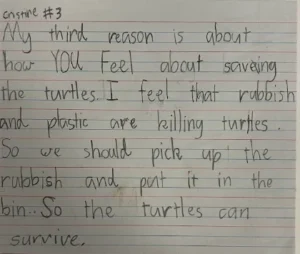 cristine #3
My third reason is about
how YOU Feel about saveing
the turtles. I feel that rubbish
and plastic are killing turtles.
So we should pick up the
rubbish and put it in the
bin. So the turtles can
survive.